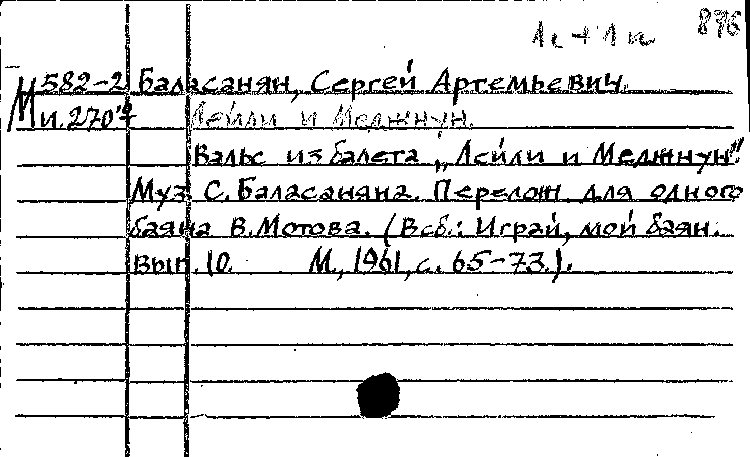 1е + 1и 876
М 582-2 Баласанян, Сергей Артемьевич.
и.270 Лейли и Меджнун.
Вальс из балета „Лейли и Меджнун".
Муз. С. Баласаняна. Перелож. для одного
баяна В. Мотова. (В сб.: Играй, мой баян.
Вып. 10. М., 1961, с. 65-73.).